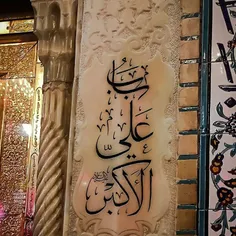 باب
علي
الأكبر